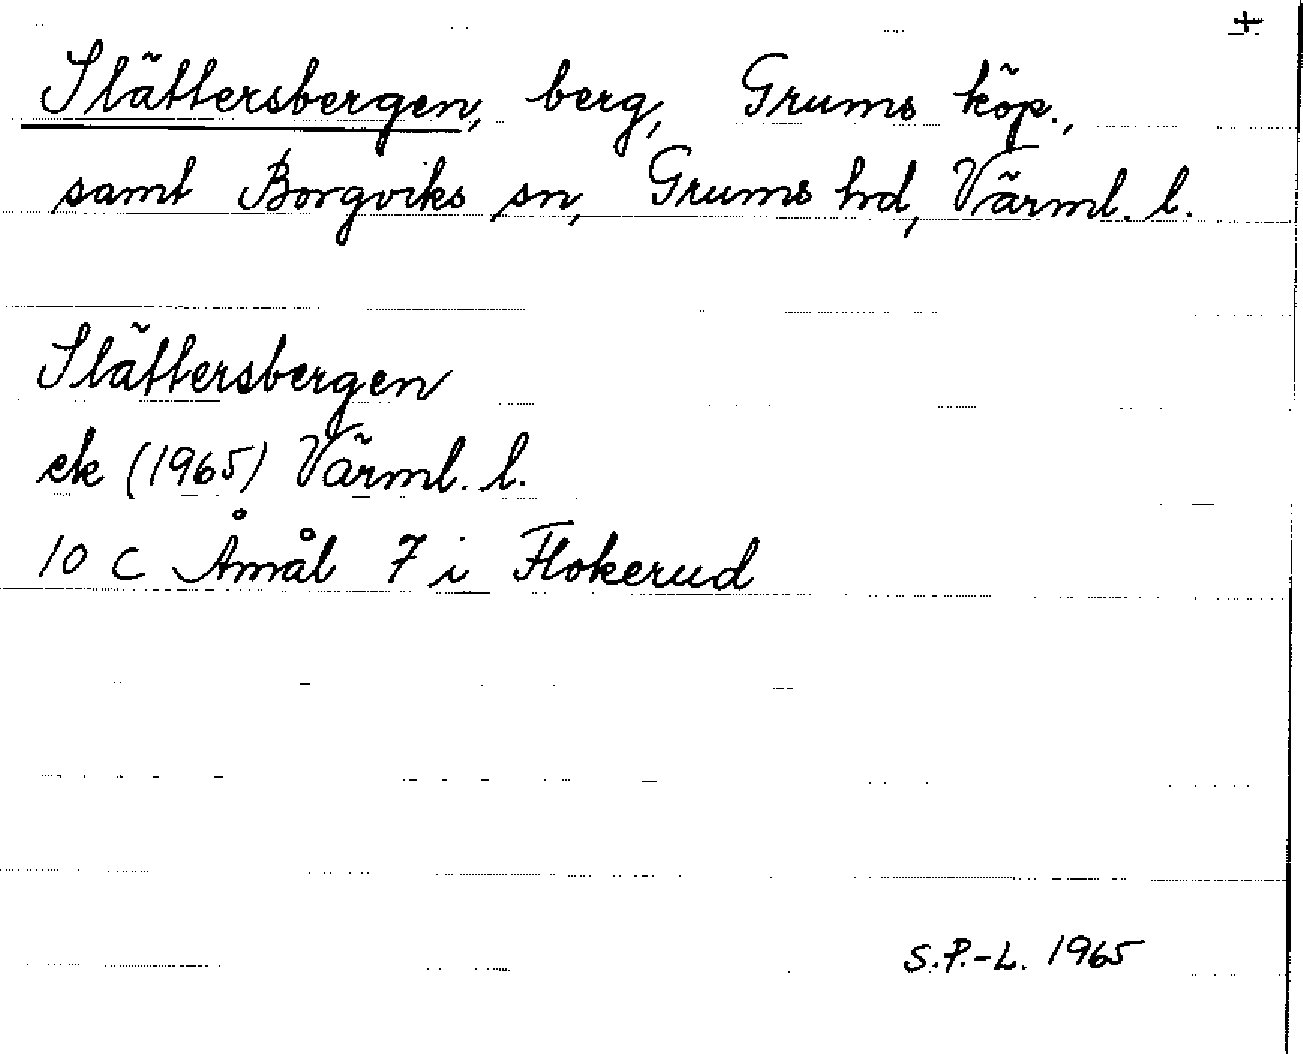 +
Slättersbergen, berg, Grums köp.,
samt Borgviks sn, Grums hd, Värml. l.
Slättersbergen
ek (1965) Värml. l.
10 C Åmål 7 i Flokerud
S.P.-L. 1965